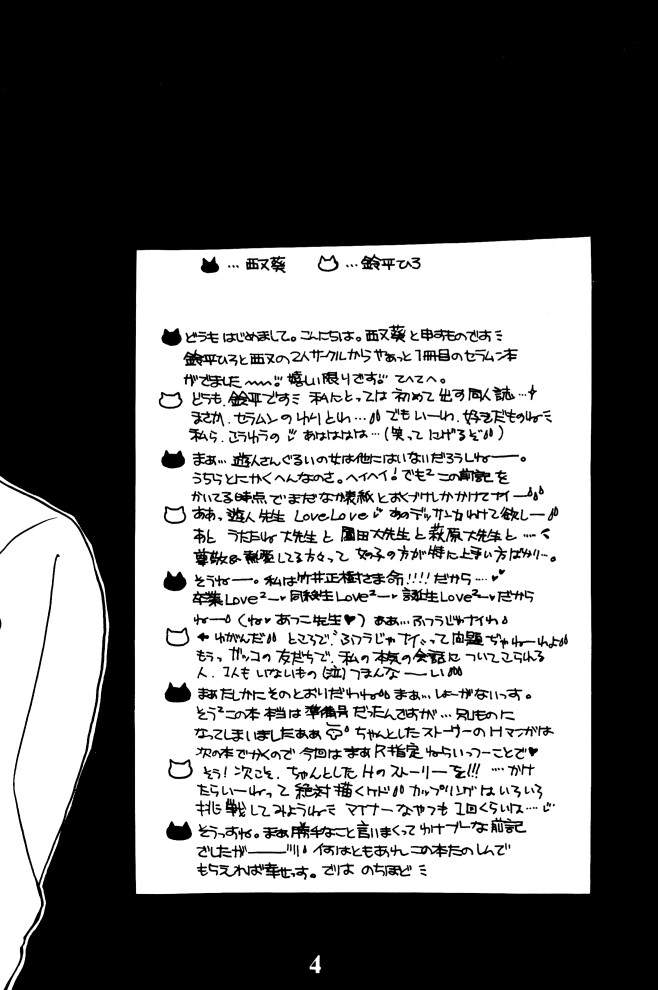 …西又葵 …鈴平ひろ
どうも はじめまして。こんにちは。西又葵と申すものです
鈴平ひろと西又の2人サークルからやぁっと1冊目のセラムン本
がでました〜〜!! 嬉しい限りです!! てへてへ。
どうも、鈴平です 私にとっては 初めて 出す 同人誌…
まさか、セラムンの とわ… でもいーわ、好きだものね
私ら、こうゆうの あはははは…(笑ってにげるぞ)
まぁ… 遊人さんぐるいの女は他にはいないだろうしねー。
うちらとにかくへんなのさ。ヘイヘイ! でも²この前記を
かいてる時点でまだ
ああっ 遊人先生 LoveLove あのデッサン力わけて欲しー
あと うたたね大先生と 園田大先生と 萩原大先生と ……
尊敬&熱愛してる方々って 女の子の方が特に上手い方ばかり…。
そうねー。私は竹井正樹さま命!!!!だから…♥♥
卒業Love²ー♥同級生Love²ー♥誕生Love²ー♥だから
ねー (ね♥あつこ先生♥) ああ…ふつうじゃナイわ
←ゆがんだ ところで、ふつうじゃナイって問題ぢゃねーわよ
もうっ ガッコの友だちで、私の本気の会話に ついてこられる
人、1人もいないもの(泣)つまんなーーい
まぁたしかにそのとおりだわね まぁ…しょーがないっす。
そう²この本 本当は準備号だったんですが…別ものに
なってしまいましたああ ちゃんとしたストーリーのHマンガは
次の本でかくので 今回は まあR指定ねらいっつーことで♥
そう! 次こそ、ちゃんとしたHのストーリーを!!! …かけ
たらいーわねって 絶対描くケド カップリングはいろいろ
挑戦してみようね マイナーなやつも1回くらいは…
そうっすね。まあ勝手なこと言いまくって な前記
でしたがーーー 何はともあれこの本たのしんで
もらえれば幸せっす。では のちほど
4